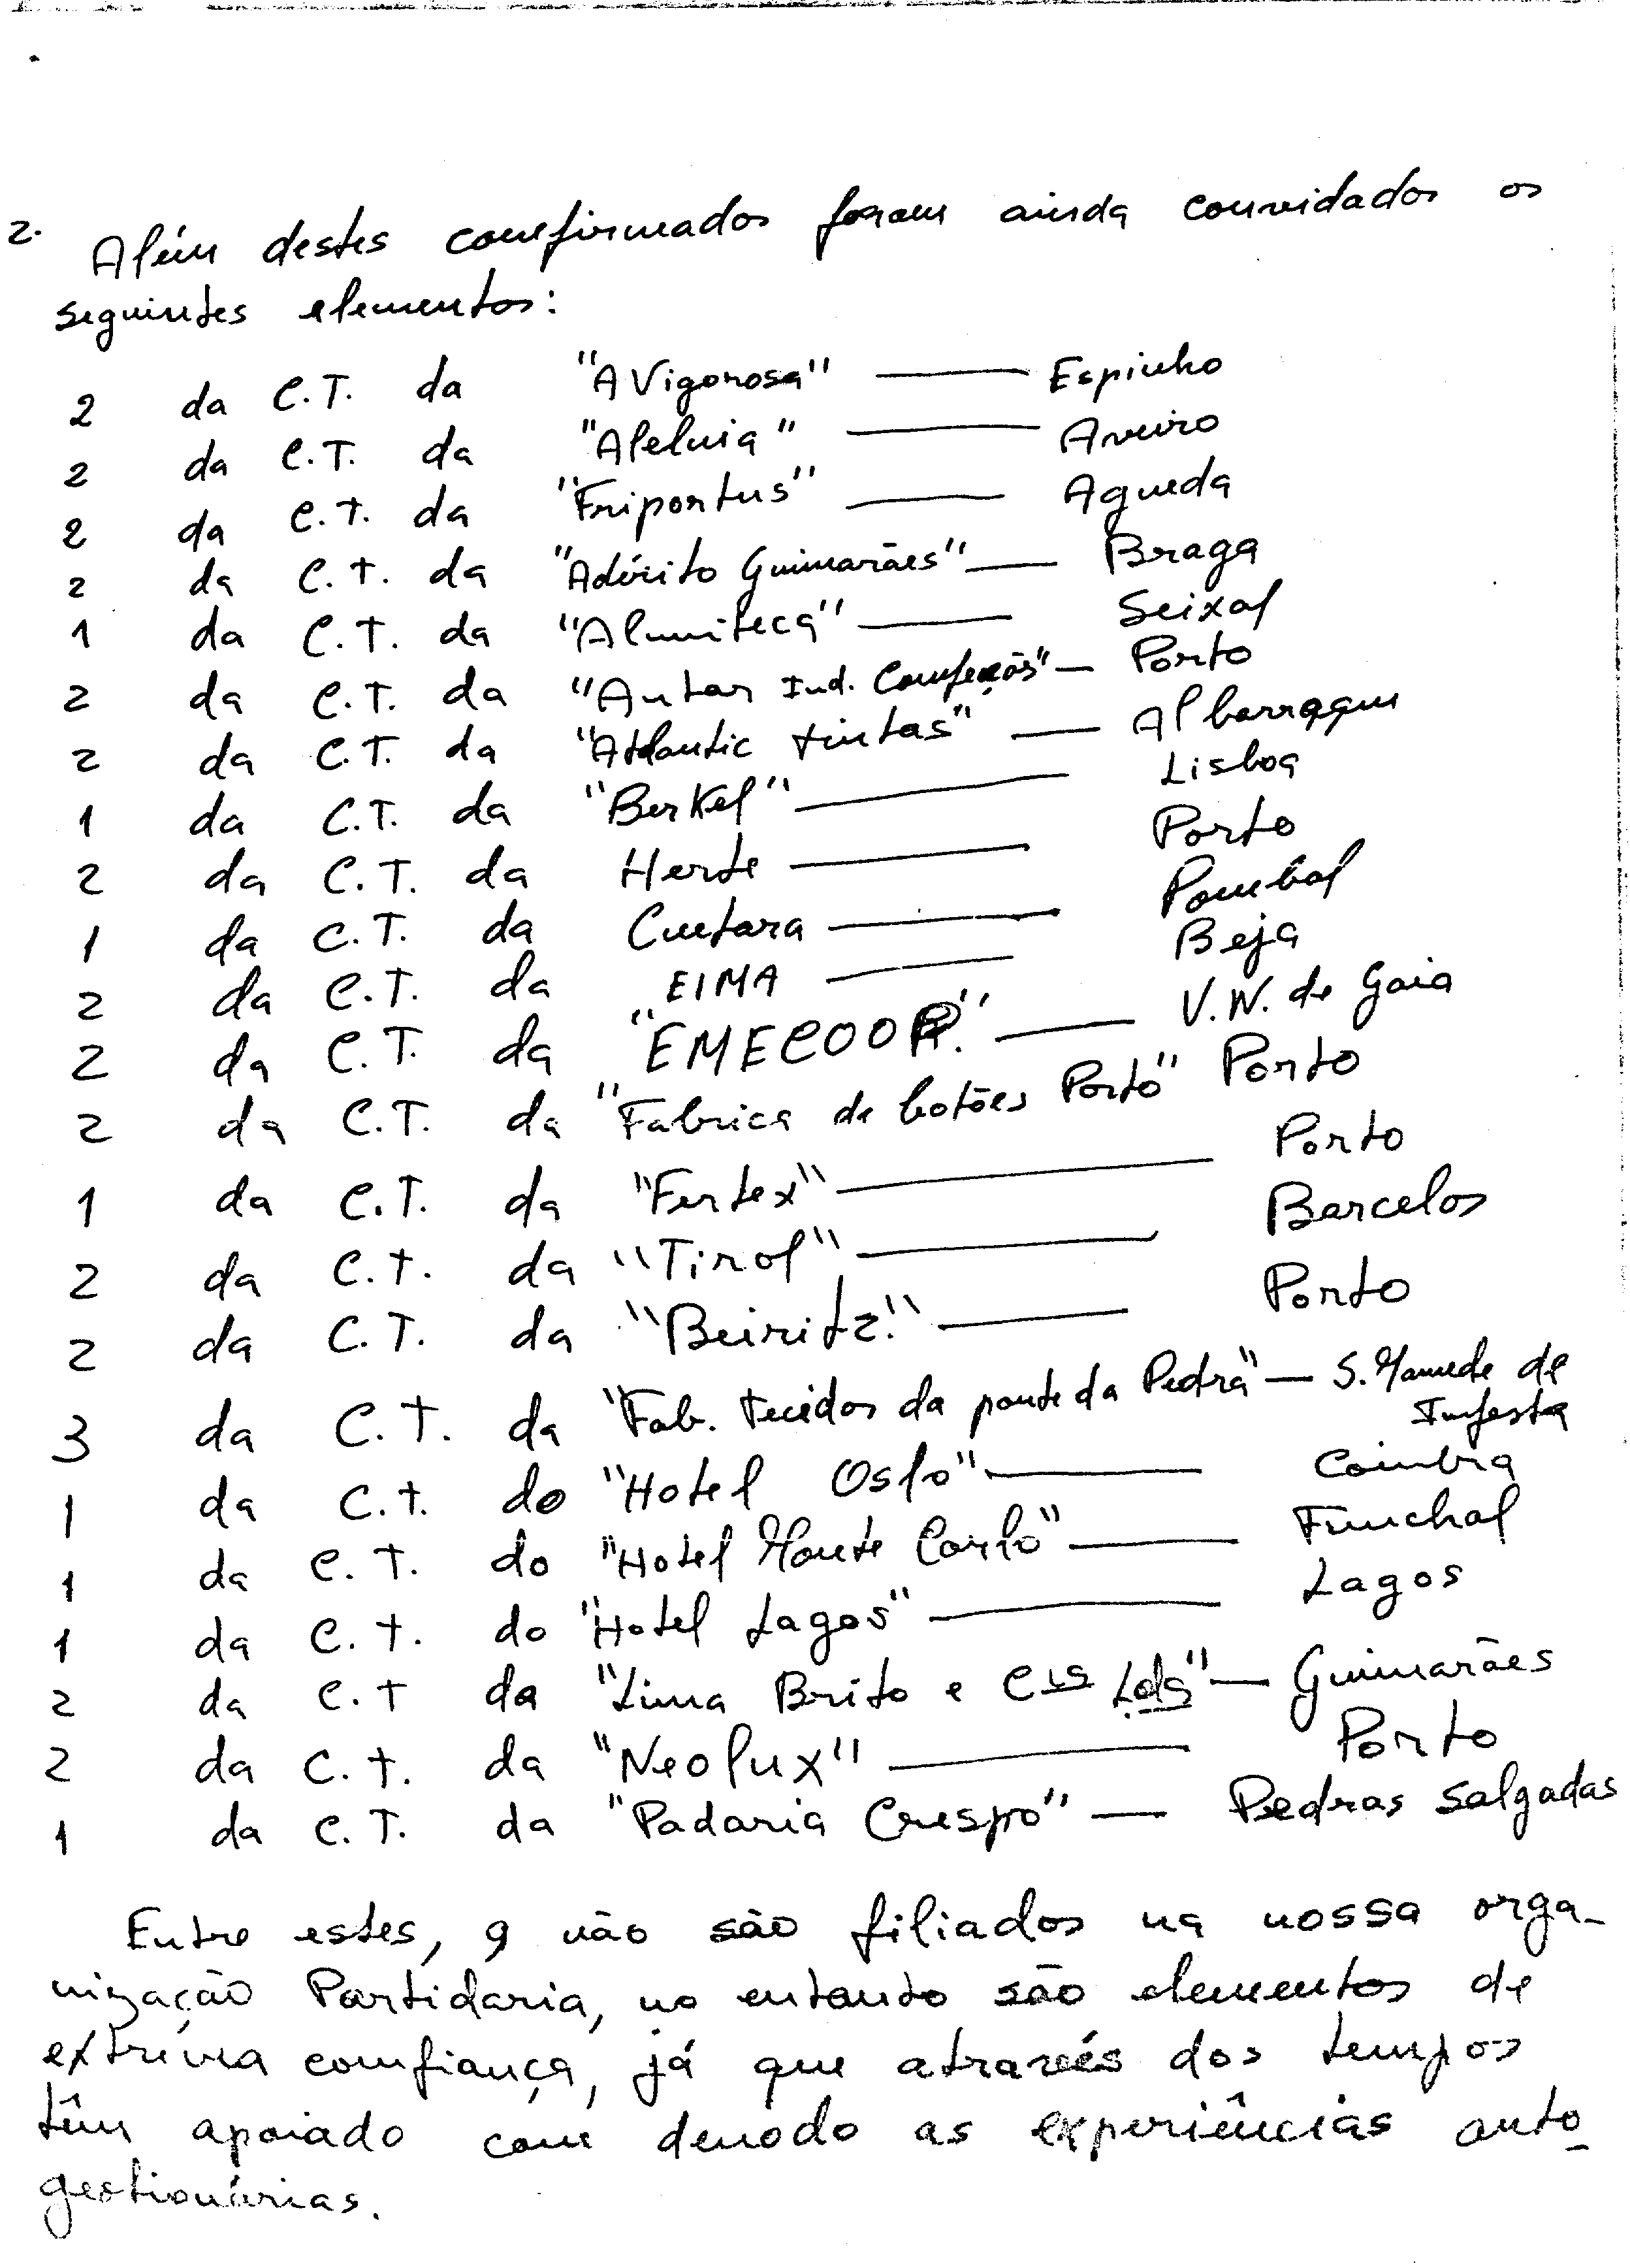 2. Além destes comfirmados foram ainda convidados os
seguintes elementos:
2 da C.T. da "A Vigorosa" —— Espinho
2 da C.T. da "Aleluia" —— Aveiro
2 da C.T. da "Friportus" —— Agueda
2 da C.T. da "Adérito Guimarães" — Braga
1 da C.T. da "Alumiteca" —— Seixal
2 da C.T. da "Antar Ind. Comfeções" — Porto
2 da C.T. da "Atlantic tintas" — Albarraque
1 da C.T. da "Berkel" —— Lisboa
2 da C.T. da Herte —— Porto
1 da C.T. da Cuetara —— Pombal
2 da C.T. da EIMA —— Beja
2 da C.T. da "EMECOOP." —— V.N. de Gaia
2 da C.T. da "Fabrica de botões Porto" Porto
1 da C.T. da "Fertex" —— Porto
2 da C.T. da "Tirol" —— Barcelos
2 da C.T. da "Beiritz." —— Porto
3 da C.T. da "Fab. tecidos da ponte da Pedra" — S. Mamede de
Imfesta
1 da C.T. do "Hotel Oslo" —— Coimbra
1 da C.T. do "Hotel Monte Carlo" —— Funchal
1 da C.T. do "Hotel Lagos" —— Lagos
2 da C.T da "Lima Brito e Cia Lda" — Guimarães
2 da C.T. da "Neolux" —— Porto
1 da C.T. da "Padaria Crespo" — Pedras Salgadas
Entre estes, 9 não são filiados na nossa orga-
nização Partidaria, no entanto são elementos de
extrema comfiança, já que através dos tempos
têm apoiado com denodo as experiências auto-
gestionárias.